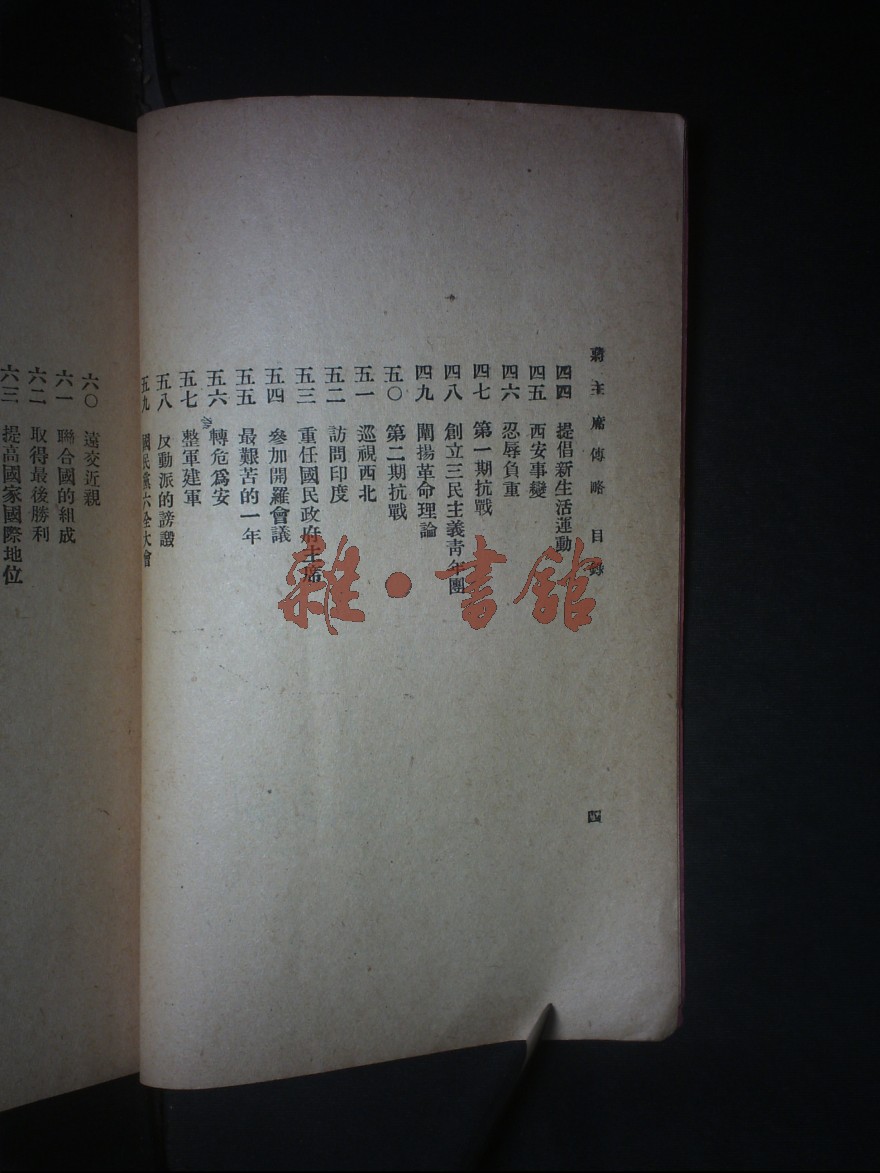 蔣主席傳略 目錄
四
四四 提倡新生活運動
四五 西安事變
四六 忍辱負重
四七 第一期抗戰
四八 創立三民主義靑年團
四九 闡揚革命理論
五〇 第二期抗戰
五一 巡視西北
五二 訪問印度
五三 重任國民政府主席
五四 參加開羅會議
五五 最艱苦的一年
五六 轉危爲安
五七 整軍建軍
五八 反動派的謗讟
五九 國民黨六全大會
六〇 遠交近親
六一 聯合國的組成
六二 取得最後勝利
六三 提高國家國際地位
雜·書館